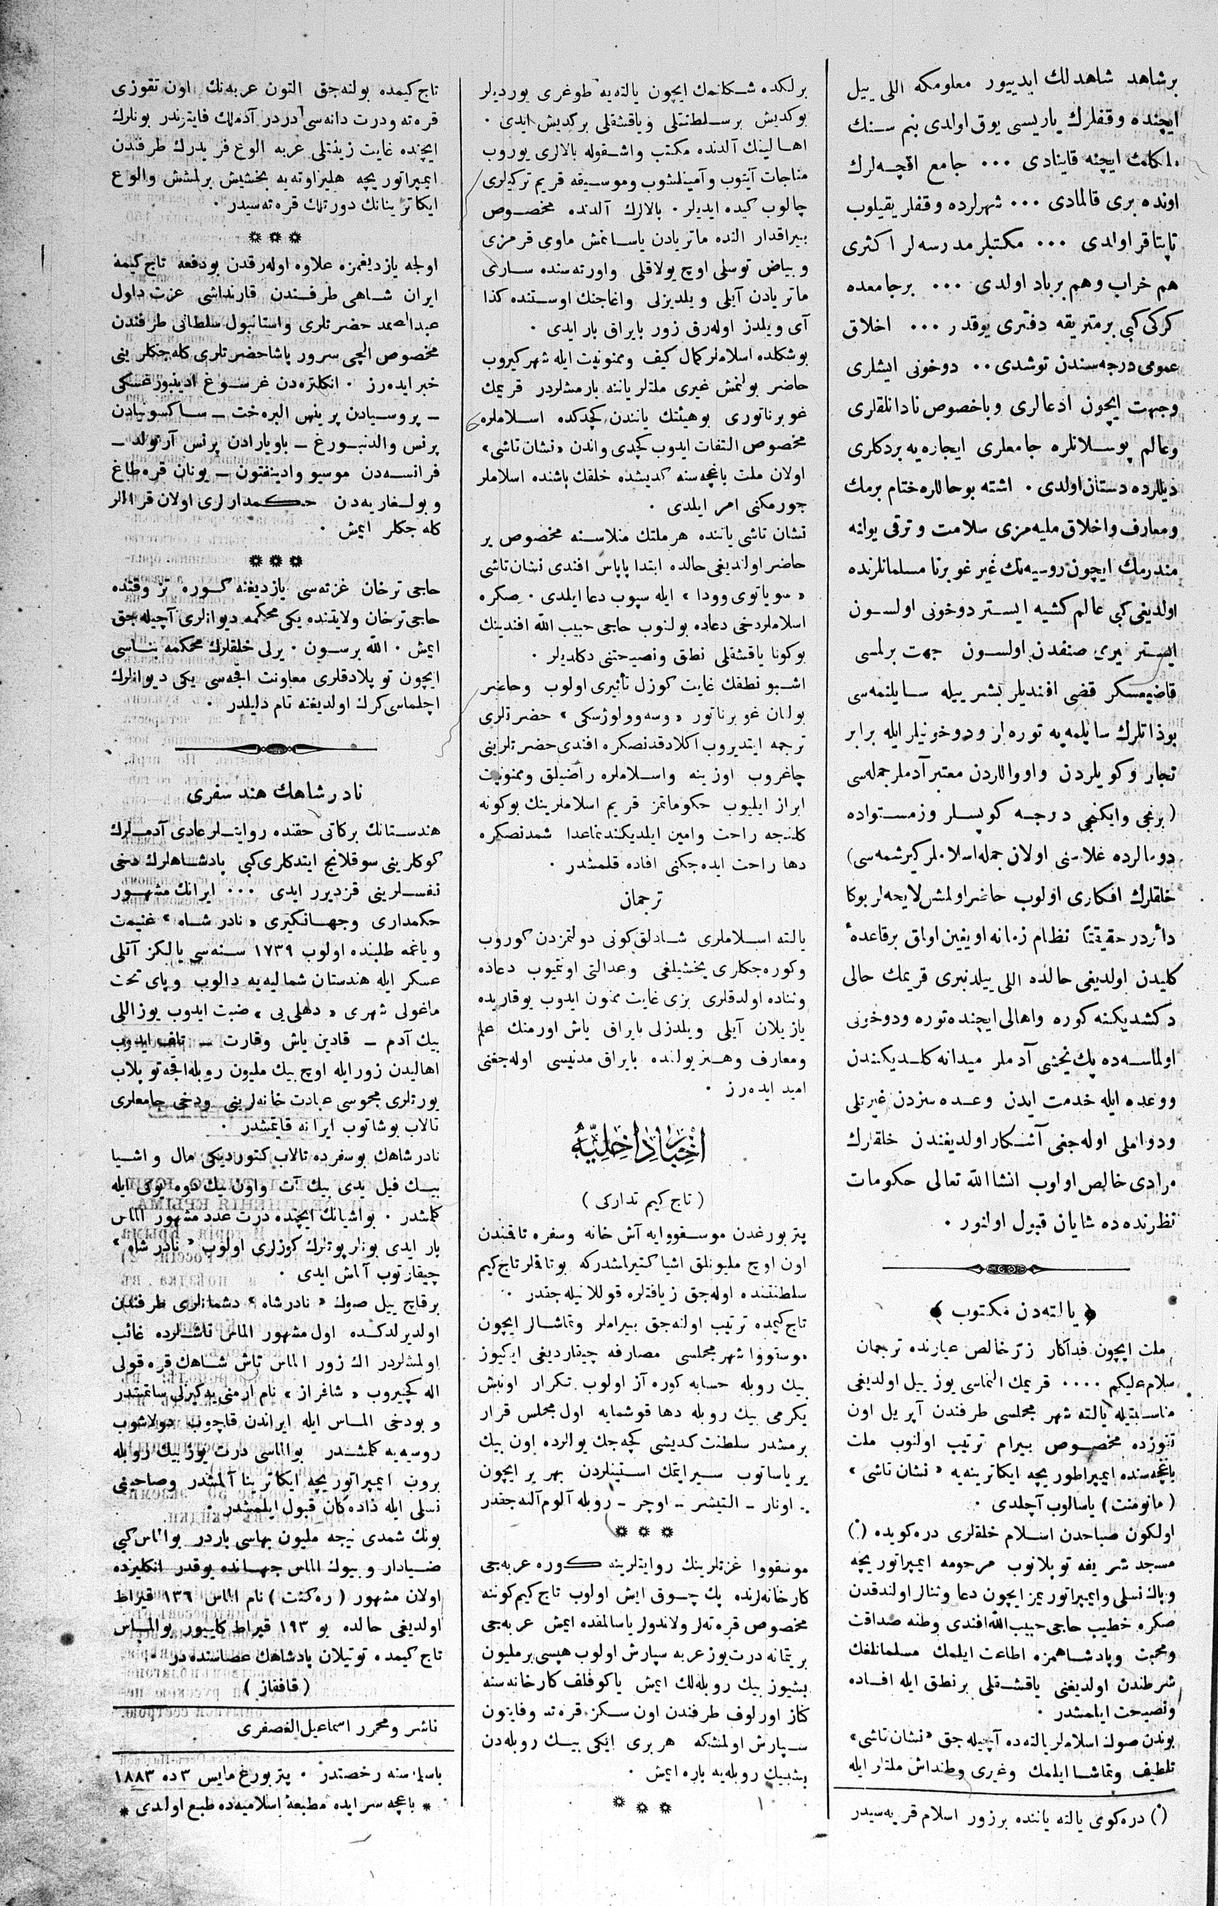 برشاهد شاهدلك ايدييور معلومكه اللى ييل
ايچنده وقفلرك ياريسى يوق اولدى بنم سنك
ملكامك ايچنه قاينادى ... جامع اقچه‌لرك
اونده برى قالمادى ... شهرلرده وقفلر يقيلوب
تاپتاقر اولدى ... مكتبلر مدرسه‌لر اكثرى
هم خراب وهم برباد اولدى ... برجامعده
كركى كبى برمتريقه دفترى يوقدر ... اخلاق
عمومى درجه‌سندن توشدى .. دوخونى ايشلرى
وجهت ايچون ادعالرى وباخصوص نادانلقلرى
وعالم پوسلانلره جامعلرى ايجاره‌يه بردكلرى
ديللرده دستان اولدى . اشته بوحاللره ختام برمك
ومعارف واخلاق مليه‌مزى سلامت وترقى يولنه
مندرمك ايچون روسيه‌نك غير غوبرنا مسلمانلرنده
اولديغى كبى عالم كشيه ايستر دوخونى اولسون
ايستر غيرى صنفدن اولسون جهت برلمسى
قاضيعسكر قضى افنديلر بشرييله سايلنمه‌سى
بوذاتلرك سايلمه‌يه توره‌لر ودوخونيلر ايله برابر
تجار وكويلردن واووللردن معتبر آدملر جمله‌سى
(برنجى وايكنجى درجه كوپسلر وزمستواده
دومالرده غلاسنى اولان جمله اسلاملر كيرشمه‌سى)
خلقلرك افكارى اولوب حاضر اولمش لايحه‌لر بوكا
دائردر حقيقتا نظام زمانه اويغين اولق برقاعده‌ء
كليدن اولديغى حالده اللى ييلدنبرى قريمك حالى
دكشديكنه كوره واهالى ايچنده توره ودوخونى
اولماسه‌ده پك يخشى آدملر ميدانه كلديكندن
ووعده ايله خدمت ايدن وعده سزدن غيرتلى
ودواملى اوله‌جغى آشكار اولديغندن خلقلرك
مرادى خالص اولوب انشاالله تعالى حكومات
نظرنده‌ده شايان قبول اولنور .
﴿ يالته‌دن مكتوب ﴾
ملت ايچون فداكار زتر خالص عبارنده ترجمان
سلام عليكم .... قريمك التماسى يوز ييل اولديغى
مناسبتيله يالته شهر مجلسى طرفندن آپريل اون
تنوزده مخصوص بيرام ترتيب اولنوب ملت
باغچه‌سنده ايمپراطوريچه ايكاترينه‌يه «نشان تاشى»
(مانومنت) ياسالوب آچلدى .
اولكون صباحدن اسلام خلقلرى دره كويده (*)
مسجد شريفه توپلانوب مرحومه ايمپراتوريچه
وپاك نسلى وايمپراتوريمز ايچون دعا وثنالر اولندقدن
صكره خطيب حاجى حبيب الله افندى وطنه صداقت
ومحبت وپادشاهمزه اطاعت ايلمك مسلمانلغك
شرطندن اولديغنى ياقشقلى برنطق ايله افاده
ونصيحت ايلمشدر .
بوندن صوك اسلاملر يالته‌ده آچيله‌جق «نشان تاشى»
تلطيف وتماشا ايلمك وغيرى وطنداش ملتلر ايله
(*) دره‌كوى يالته ياننده برزور اسلام قريه‌سيدر
برلكده شكانمك ايچون يالته‌يه طوغرى يورديلر
بوكديش برسلطنتلى وياقشقلى بركديش ايدى .
اهالينك آلدنده مكتب واشقوله بالالرى يوروب
مناجات آيتوب وآمينلشوب وموسيقه قريم تركيلرى
چالوب كيده ايديلر . بالالرك آلدنده مخصوص
بيراقدار النده ماتريادن ياسانمش ماوى قرمزى
وبياض توسلى اوچ يولاقلى واورته‌سنده سارى
ماتريادن آيلى ويلديزلى واغاجنك اوستنده كذا
آى ويلدز اوله‌رق زور بايراق بار ايدى .
بوشكلده اسلاملر كمال كيف وممنونيت ايله شهر كيروب
حاضر بولنمش غيرى ملتلر ياننه بارمشلردر قريمك
غوبرناتورى بوهيئتك يانندن كچدكده اسلاملره
مخصوص التفات ايدوب كچدى واندن «نشان تاشى»
اولان ملت باغچه‌سنه كديشده خلقك باشنده اسلاملر
جورمكنى امر ايلدى .
نشان تاشى ياننده هر ملتك منلاسنه مخصوص ير
حاضر اولنديغى حالده ابتدا پاپاس افندى نشان تاشى
«سوياتوى وودا» ايله سپوب دعا ايلدى . صكره
اسلاملردخى دعاده بولنوب حاجى حبيب الله افندينك
بوكونا ياقشقلى نطق ونصيحتنى دكلديلر .
اشبو نطقك غايت كوزل تأثيرى اولوب وحاضر
بولنان غوبرناتور «وسه‌وولوژسكى» حضرتلرى
ترجمه ايتديروب اكلادقدنصكره افندى حضرتلرينى
چاغروب اوزينه واسلاملره راضيلق وممنونيت
ابراز ايليوب حكوماتمز قريم اسلاملرينك بوكونه
كلنجه راحت وامين ايلديكندنماعدا شمدنصكره
دها راحت ايده‌جكنى افاده قلمشدر .
ترجمان
يالته اسلاملرى شادلق كونى دولتمزدن كوروب
وكوره‌جكلرى يخشيلغى وعدالتى اونتميوب دعاده
وثناده اولدقلرى بزى غايت ممنون ايدوب يوقاريده
يازيلان آيلى ويلدزلى بايراق ياش اورمنك علم
ومعارف وهنر يولنده بايراق مدنيسى اوله‌جغنى
اميد ايده‌رز .
اخبار داخليّه
(تاج كيم تداركى)
پتربورغدن موسقووايه آش خانه وسفره تاقمندن
اون اوچ مليونلق اشيا كتيرلمشدركه بوتاقملر تاج كيم
سلطنتنده اوله‌جق زيافتلره قوللانيله‌جقدر .
تاج كيمده ترتيب اولنه‌جق بيراملر وتماشالر ايچون
موسقووا شهر مجلسى مصارفه چيقارديغى ايكيوز
بيك روبله حسابه كوره آز اولوب تكرار اوتبش
يكرمى بيك روبله دها قوشمايه اول مجلس قرار
برمشدر سلطنت كديشى كچه‌جك يوللرده اون بيك
ير ياساتوب سيرايتمك استينلردن بهر ير ايچون
اونار - التيشر - اوچر - روبله آلوم آلنه‌جقدر
✵ ✵ ✵
موسقووا غزتلرينك روايتلرينه كوره عربه‌جى
كارخانه‌لرنده پك چوق ايش اولوب تاج كيم كوننه
مخصوص قره‌ته‌لر ولاندولر ياسالمقده ايمش عربه‌جى
بريتمانه درت يوز عربه سپارش اولوب هپسى برمليون
بشيوز بيك روبله‌لك ايمش ياكوفلف كارخانه‌سنه
كناز اورلوف طرفندن اون سكز قره‌ته وفايتون
سپارش اولمشكه هربرى ايكى بيك روبله‌دن
بشبيك روبله‌يه باره ايمش .
✵ ✵ ✵
تاج كيمده بولنه‌جق التون عربه‌نك اون تقوزى
قره‌ته ودرت دانه‌سى دردر آدملك فايتوندر بونلرك
ايچنده غايت زينتلى عربه الوغ فريدرك طرفندن
ايمپراتوريچه هليزاوته‌يه بخشيش برلمشش والوغ
ايكاترينانك دورتلك قره‌ته‌سيدر .
✵ ✵ ✵
اولجه يازديغمزه علاوه اوله‌رقدن بودفعه تاج كيمه
ايران شاهى طرفندن قارنداشى عزت داول
عبدالصمد حضرتلرى واستانبول سلطانى طرفندن
مخصوص الچى سرور پاشا حضرتلرى كله‌جكلرينى
خبر ايده‌رز . انكلتره‌دن غرسوغ ادينبورغسكى
- پروسيادن پرينس البره‌خت - ساكسونيادن
پرنس والدنبورغ - باويارادن پرنس آرنولد -
فرانسه‌دن موسيو وادينغتون - يونان قره‌طاغ
وبولغاريه‌دن حكمدارلرى اولان قراللر
كله‌جكلر ايمش .
✵ ✵ ✵
حاجى ترخان غزته‌سى يازديغنه كوره تز وقتده
حاجى ترخان ولايتنده يكى محكمه ديوانلرى آچيله‌جق
ايمش . الله برسون . يرلى خلقلرك محكمه بناسى
ايچون توپلادقلرى معاونت اقچه‌سى يكى ديوانلرك
اچلماسى كرك اولديغنه تام دليلدر .
نادر شاهك هند سفرى
هندستانك بركاتى حقنده روايتلر عادى آدملرك
كوكلرينى سوقلانج ايتدكلرى كبى پادشاهلرك دخى
نفسلرينى قزديرر ايدى ... ايرانك مشهور
حكمدارى وجهانكيرى «نادر شاه» غنيمت
وياغمه طلبنده اولوب ١٧٣٩ سنه‌سى يالكز آتلى
عسكر ايله هندستان شماليه‌يه دالوب وپاى تحت
ماغولى شهرى «دهلى يى» ضبت ايدوب يوزاللى
بيك آدم - قادين ياش وقارت - تلف ايدوب
اهاليدن زور ايله اوچ بيك مليون روبله اقچه توپلاب
يورتلرى مجوسى عبادت خانه‌لرينى ودخى جامعلرى
تالاب بوشاتوب ايرانه قايتمشدر .
نادر شاهك بوسفرده تالاب كتورديكى مال واشيا
بيك فيل يدى بيك آت واون بيك دوه يوكى ايله
كلمشدر . بواشيانك ايچنده درت عدد مشهور الماس
بار ايدى بونلر پوتلرك كوزلرى اولوب «نادر شاه»
چيقارتوب آلمش ايدى .
برقاچ ييل صوك «نادر شاه» دشمانلرى طرفندن
اولديرلدكده اول مشهور الماس تاشلرده غائب
اولمشلردر اك زور الماس تاش شاهك قره قولى
اله كچيروب «شافراز» نام ارمنى‌يه كيزلى ساتمشدر
وبودخى الماس ايله ايراندن قاچوب دولاشوب
روسيه‌يه كلمشدر بوالماسى درت يوز بيك روبله
بروب ايمپراتوريچه ايكاترينا آلمشدر وصاحبنى
نسلى ايله ذاده‌كان قبول ايلمشدر .
بونك شمدى نيجه مليون بهاسى باردر بوالماس كبى
ضيادار وبيوك الماس جهانده يوقدر انكليزده
اولان مشهور (ره‌كنت) نام الماس ١٣٦ قيراط
اولديغى حالده بو ١٩٣ قيراط كلييور بوالماس
تاج كيمده توتيلان پادشاهك عصاسنده‌در .
(قافقاز)
ناشر ومحرر اسماعيل الغصفرى
باسلى‌سنه رخصتدر . پتربورغ مايس ٣ ده ١٨٨٣
* باغچه سرايده مطبعهٔ اسلاميه‌ده طبع اولدى *